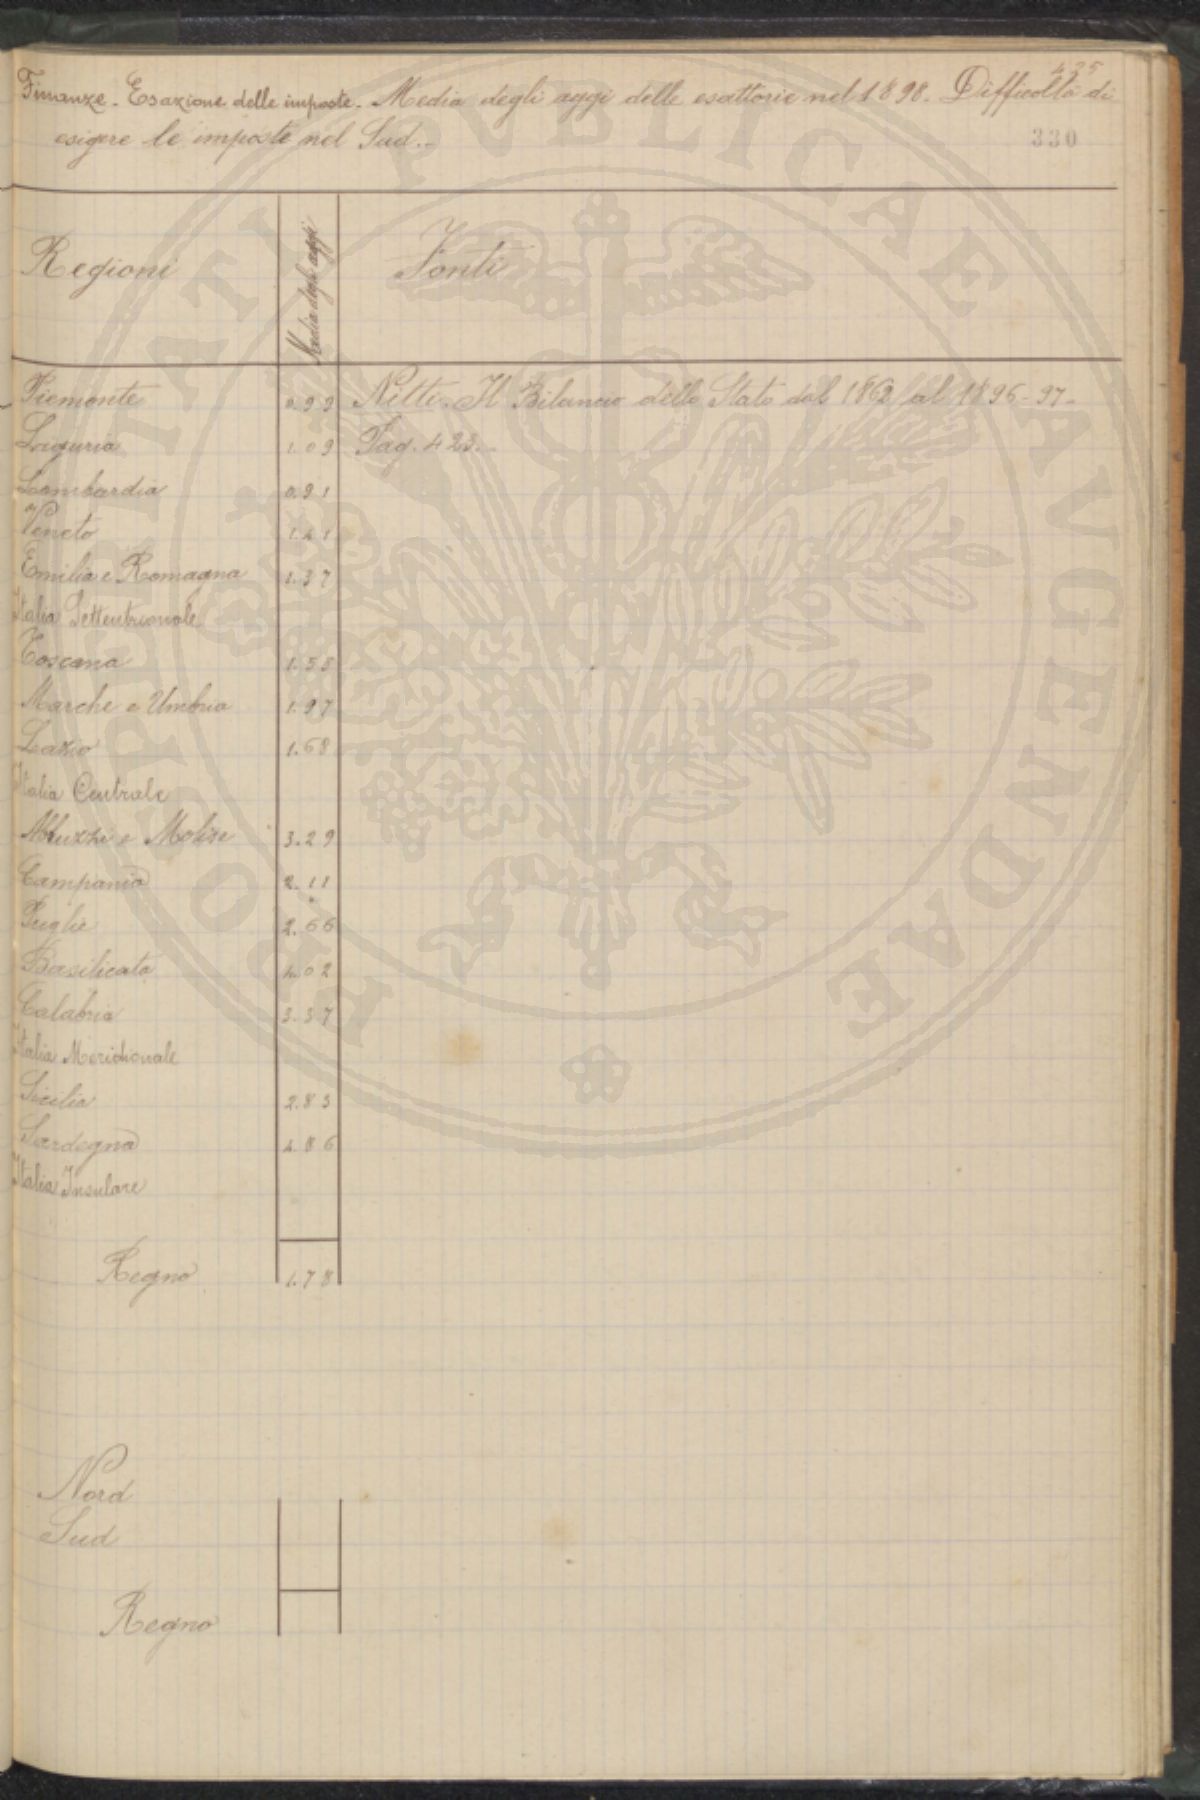 435
Finanze - Esazione delle imposte - Media degli aggi delle esattorie nel 1898. Difficoltà di
esigere le imposte nel Sud.-
330
Regioni Media degli aggi Fonti
Piemonte 0.99 Nitti. Il Bilancio dello Stato dal 1862 al 1896-97-
Liguria 1.09 Pag. 423.-
Lombardia 0.91
Veneto 1.41
Emilia e Romagna 1.37
Italia Settentrionale
Toscana 1.58
Marche e Umbria 1.97
Lazio 1.68
Italia Centrale
Abruzzi e Molise 3.29
Campania 2.11
Puglie 2.66
Basilicata 4.02
Calabria 3.37
Italia Meridionale
Sicilia 2.83
Sardegna 4.86
Italia Insulare
Regno 1.78
Nord
Sud
Regno
PROSPERITATI PVBLICAE AVGENDAE